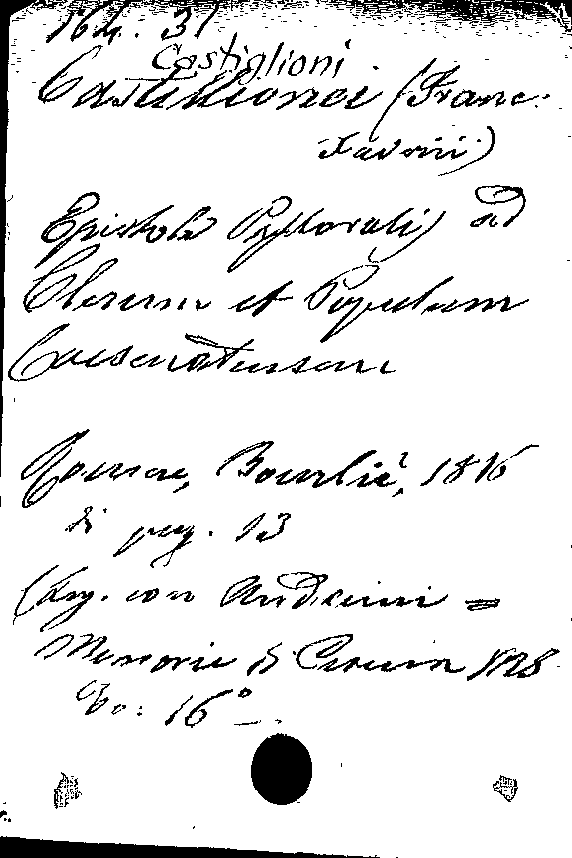 164. 31
Castiglioni
Castillionei (Franc.
Xaverii)
Epistola Pastoralis ad
Clerum et Populum
Caesenatensem
Romae, Bourliè, 1816
di pag. 13
(Leg. con Andreini =
Memorie di Cesena 1808
16°